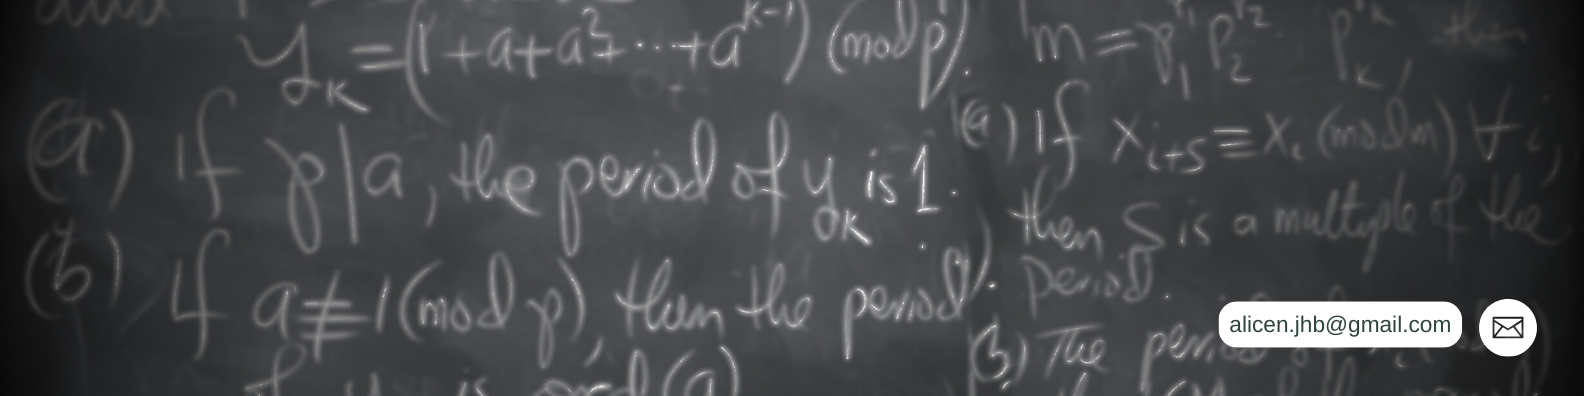 y_k = (1+a+a²+···+a^{k-1}) (mod p).
(a) If p|a, the period of y_k is 1.
(b) If a≢1 (mod p), then the period
m = p_1^{r_1} p_2^{r_2} p_k^{r_k}, then
(a) If x_{i+s} ≡ x_i (mod m) ∀ i,
then S is a multiple of the
period.
(b) The period of
alicen.jhb@gmail.com